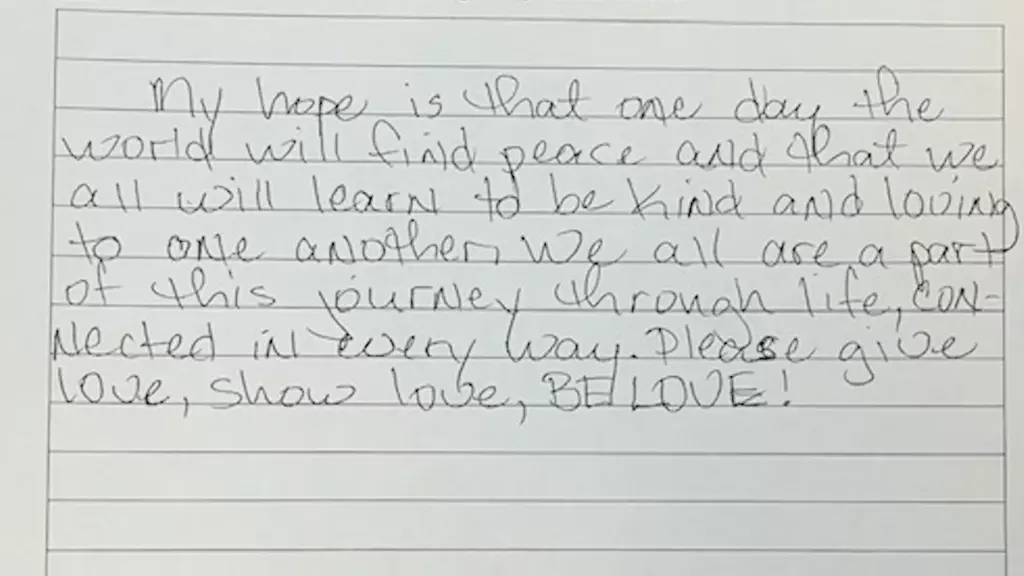 My hope is that one day the
world will find peace and that we
all will learn to be kind and loving
to one another. We all are a part
of this journey through life, con-
nected in every way. Please give
love, show love, BE LOVE!